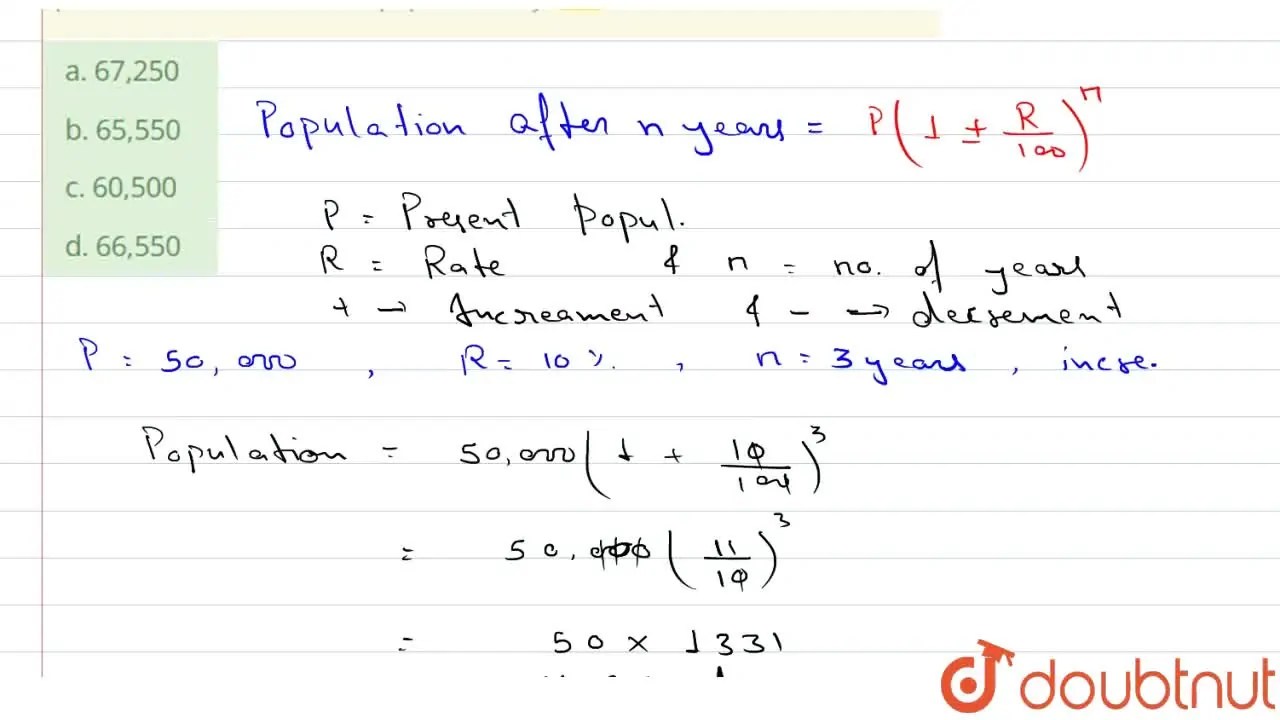 a. 67,250
b. 65,550
c. 60,500
d. 66,550
Population after n years = P(1 ± R/100)^n
P = Present Popul.
R = Rate & n = no. of years
+ → Increament & - → decrement
P = 50,000 , R = 10 %. , n = 3 years , incre.
Population = 50,000(1 + 10/100)^3
= 50,000(11/10)^3
= 50 × 1331
doubtnut